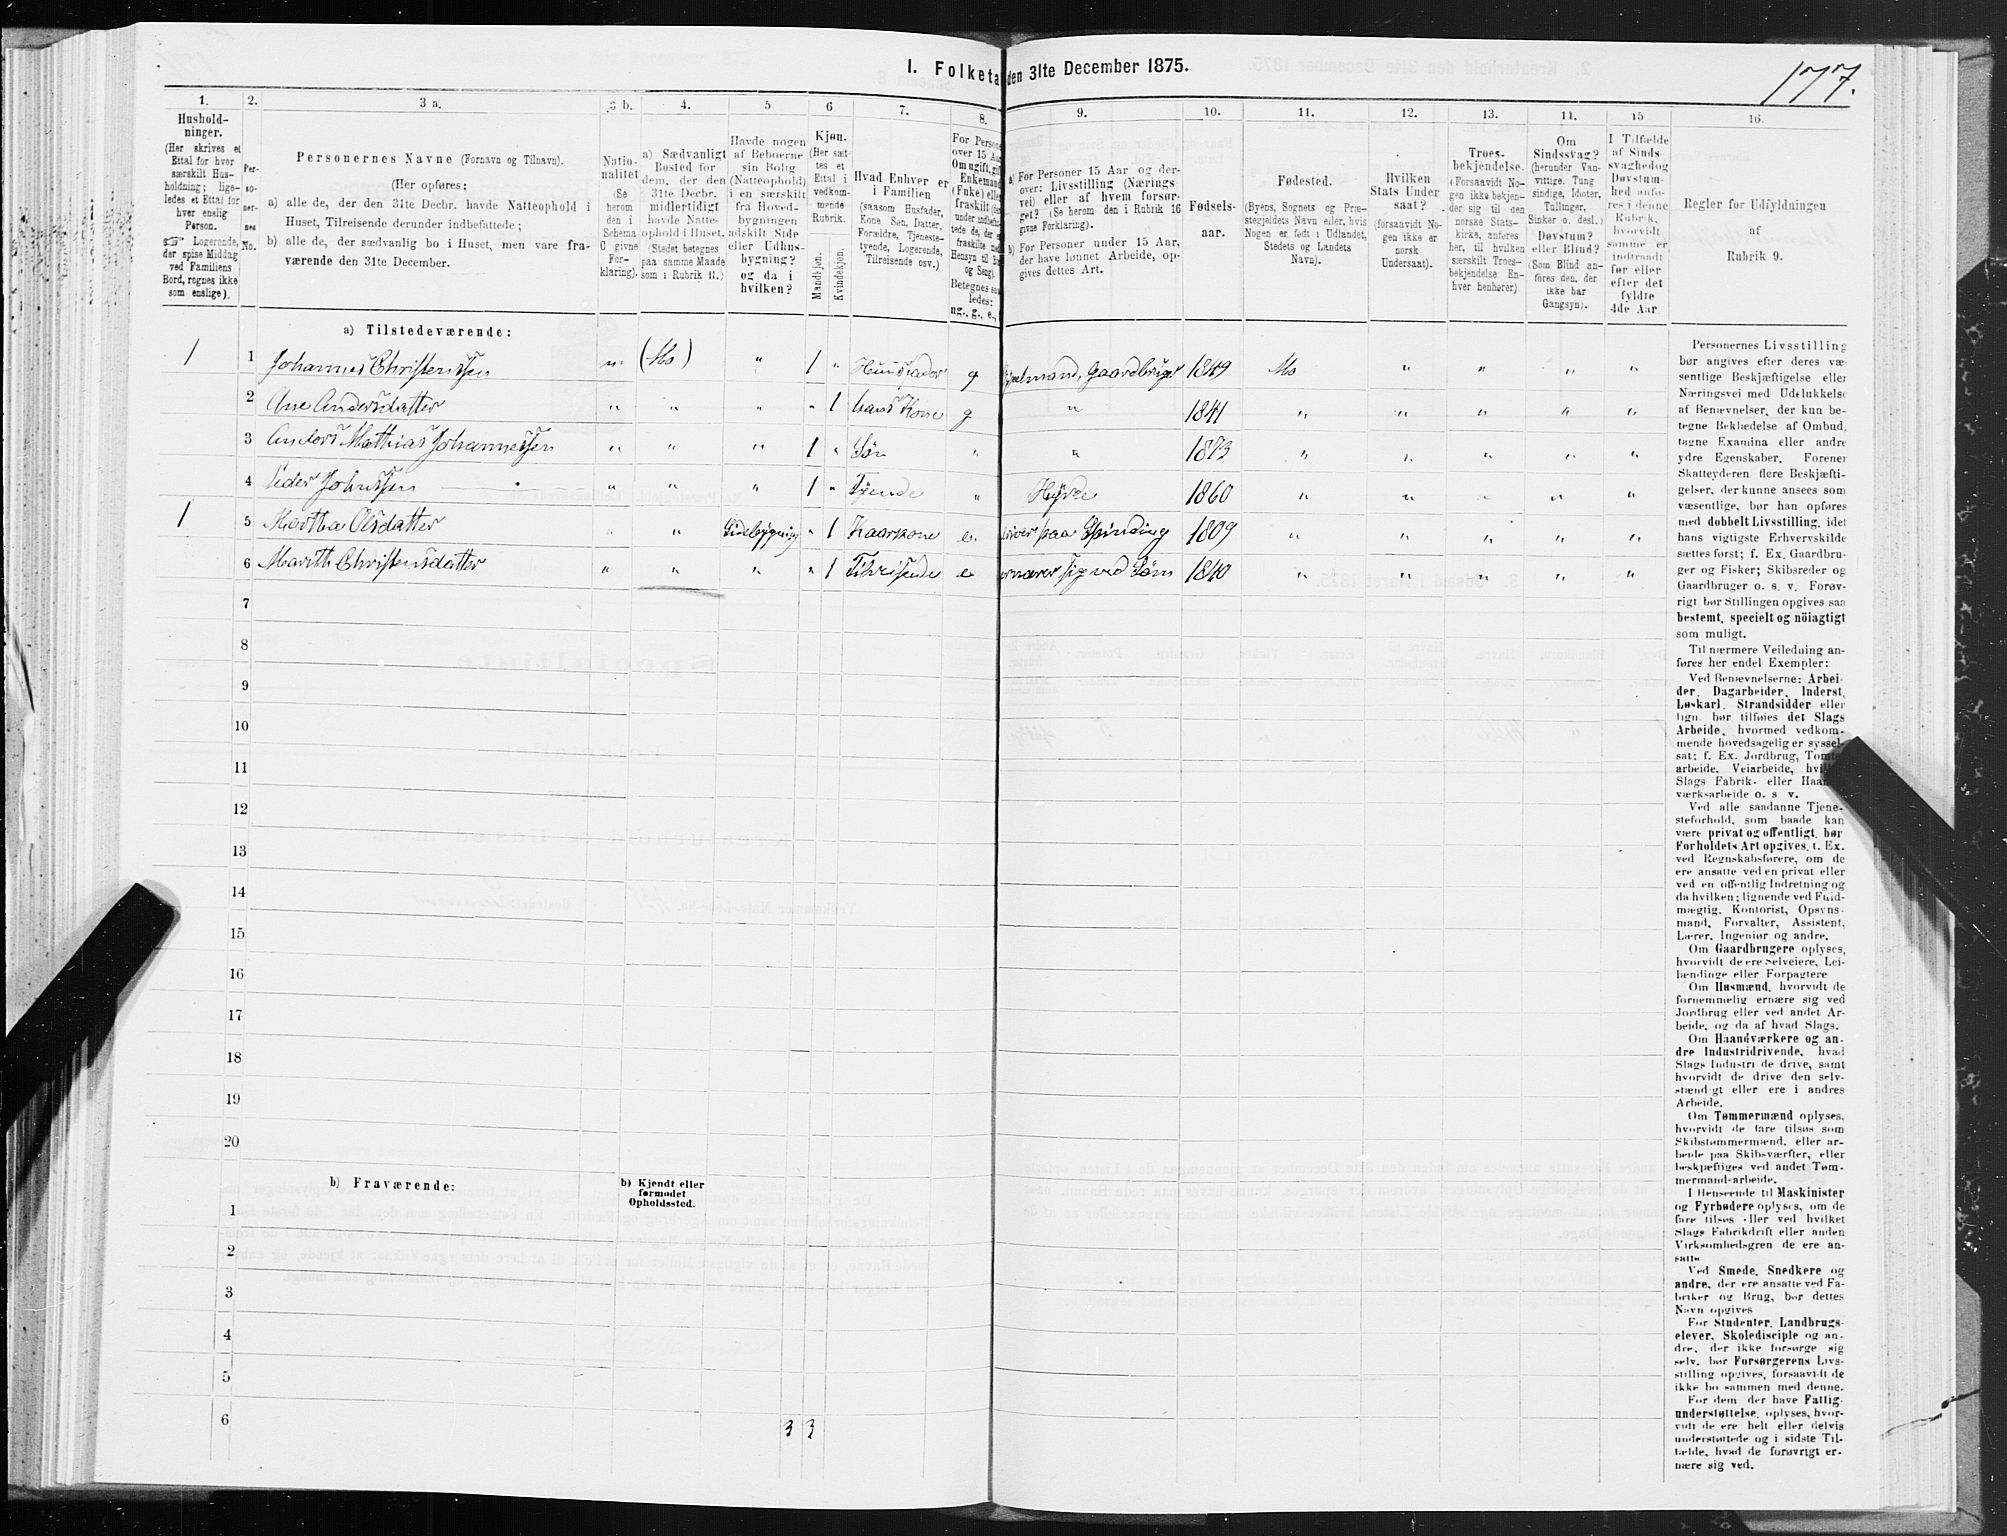 I. Folketa den 31te December 1875.
177.
1. 2. 3 a. 3 b. 4. 5 6 7. 8. 9. 10. 11. 12. 13. 14. 15 16.
Hushold-
ninger.
(Her skrives et
Ettal for hver
særskilt Hus-
holdning; lige-
ledes et Ettal for
hver enslig
Person.
☞ Logerende,
der spise Middag
ved Familiens
Bord, regnes ikke
som enslige).
Per-
so-
ner-
nes
No.
Personernes Navne (Fornavn og Tilnavn).
(Her opføres:
a) alle de, der den 31te Decbr. havde Natteophold i
Huset, Tilreisende derunder indbefattede;
b) alle de, der sædvanlig bo i Huset, men vare fra-
værende den 31te December.
Natio-
nalitet
(Se
herom
den i
Schema
O givne
For-
klaring).
a) Sædvanligt
Bosted for
dem, der den
31te Decbr.
midlertidigt
havde Natte-
ophold i Huset.
(Stedet betegnes
paa samme Maade
som i Rubrik 11.)
Havde nogen
af Beboerne
sin Bolig
(Natteophold)
i en særskilt
fra Hoved-
bygningen
adskilt Side
eller Udhus-
bygning?
og da i
hvilken?
Kjøn.
(Her sæt-
tes et
Ettal i
vedkom-
mende
Rubrik.
Mandkjøn.
Kvindekjøn.
Hvad Enhver er
i Familien
(saasom Husfader,
Kone Søn, Datter,
Forældre, Tjeneste-
tyende, Logerende,
Tilreisende osv.)
For Persone
over 15 Aa
Om ugift, gift
Enkemand
(Enke) elle
fraskilt
under indbefat-
tede de, der e
fraskilte med
Hensyn til Bo
og Seng).
Betegnes saa
ledes:
ug., g., e., f
a) For Personer 15 Aar og der-
over: Livsstilling (Nærings
vei) eller af hvem forsør-
get? (Se herom den i Rubrik 16
givne Forklaring).
b) For Personer under 15 Aar,
der have lønnet Arbeide, op-
gives dettes Art.
Fødsels-
aar.
Fødested.
(Byens, Sognets og Præ-
stegjeldets Navn eller, hvis
Nogen er født i Udlandet,
Stedets og Landets
Navn).
Hvilken
Stats Under
saat?
(forsaavidt No-
gen ikke er
norsk
Undersaat).
Troes-
bekjendelse.
(Forsaavidt No-
gen ikke bekjen-
der sig til den
norske Stats-
kirke, anføres
her, til hvilken
særskilt Troes-
bekjendelse En-
hver henhører)
Om
Sindssvag?
(herunder Van-
vittige. Tung
sindige, Idioter,
Tullinger,
Sinker o. desl.)
Døvstum?
eller Blind?
(Som Blind an-
føres den, der
ikke har
Gangsyn).
I Tilfælde
af Sinds-
svaghed og
Døvstum-
hed anfø-
res i denne
Rubrik,
hvorvidt
samme er
indtraadt
før eller
efter det
fyldte
4de Aar
Regler for Udfyldningen
af
Rubrik 9.
a) Tilstedeværende:
1 1 Johannes Christenssen n (Mo) " 1 " Huusfader g Gaardbruger 1849 Mo " " " "
2 Ane Andersdatter " " " " 1 hans Kone g " 1841 " " " " "
3 Anders Mathias Johannessen " " " 1 " Søn " " 1873 " " " " "
4 Peder Johnssen " " " 1 " Tjende " Hyrde 1860 " " " " "
1 5 Martha Olsdatter " " Sidebygning " 1 Kaarkone e paa Spinding 1809 " " " " "
6 Marith Christensdatter " " " " 1 e sig ved Søm 1840 " " " " "
7
8
9
10
11
12
13
14
15
16
17
18
19
20
b) Fraværende:
b) Kjendt eller
formodet
Opholdssted.
1
2
3
4
5
6 3 3
Personernes Livsstilling
bør angives efter deres væ-
sentlige Beskjæftigelse eller
Næringsvei med Udelukkelse
af Benævnelser, der kun be-
tegne Beklædelse af Ombud,
tagne Examina eller andre
ydre Egenskaber. Forener
Skatteyderen flere Beskjæfti-
gelser, der kunne ansees som
væsentlige, bør han opføres
med dobbelt Livsstilling, idet
hans vigtigste Erhvervskilde
sættes først; f. Ex. Gaardbru-
ger og Fisker; Skibsreder og
Gaardbruger o. s. v. Forøv-
rigt bør Stillingen opgives saa
bestemt, specielt og nöiagtigt
som muligt.
Til nærmere Veiledning an-
føres her endel Exempler:
Ved Benævnelserne: Arbei-
der, Dagarbeider, Inderst,
Løskarl, Strandsidder eller
lign. bør tilføies det Slags
Arbeide, hvormed vedkom-
mende hovedsagelig er syssel-
sat; f. Ex. Jordbrug, Tomte
arbeide, Veiarbeide, hvil
Slags Fabrik- eller Haan
værksarbeide o. s v.
Ved alle saadanne Tjene-
steforhold, som baade kan
være privat og offentligt, bør
Forholdets Art opgives, t. Ex.
ved Regnskabsførere, om de
ere ansatte ved en privat eller
ved en offentlig Indretning og
da hvilken; lignende ved Fuld-
mægtig, Kontorist, Opsyns-
mand, Forvalter, Assistent,
Lærer, Ingeniør og andre.
Om Gaardbrugere oplyses,
hvorvidt de ere Selveiere, Lei-
lændinge eller Forpagtere
Om Husmænd, hvorvidt de
fornemmelig ernære sig ved
Jordbrug eller ved andet Ar-
beide, og da af hvad Slags.
Om Haandværkere og an-
dre Industridrivende, hvad
Slags Industri de drive, samt
hvorvidt de drive den selv-
stændigt eller ere i andres
Arbeide.
Om Tømmermænd oplyses,
hvorvidt de fare tilsøs som
Skibstømmermænd, eller ar-
beide paa Skibsværfter, eller
beskjæftiges ved andet Tøm-
mermand-arbeide.
I Henseende til Maskinister
og Fyrbødere oplyses, om de
fare tilsøs eller ved hvilket
Slags Fabrikdrift eller anden
Virksomhedsgren de ere an-
satte
Ved Smede, Snedkere og
andre, der ere ansatte ved Fa-
briker og Brug, bør dettes
Navn opgives
For Studenter, Landbrugs-
elever, Skoledisciple og an-
dre, der ikke forsørge sig
selv, bør Forsørgerens Livs-
stilling opgives, forsaavidt de
ikke bo sammen med denne.
For dem, der have Fattig-
understøttelse, oplyses, hvor-
vidt de ere helt eller delvis
understøttede og i sidste Til-
fælde, hvad de forøvrigt er-
nære sig ved.